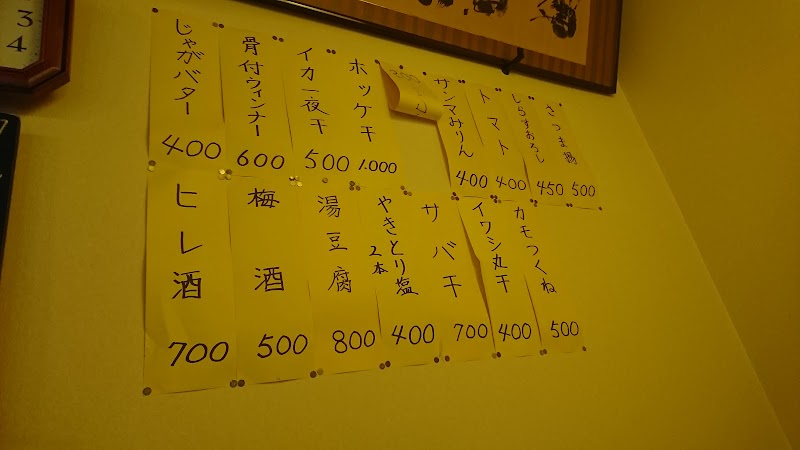 3
4
さつま揚
500
しらすおろし
450
トマト
400
サンマみりん
400
ホッケ干
1.000
イカ一夜干
500
骨付ウィンナー
600
じゃがバター
400
カモつくね
500
イワシ丸干
400
サバ干
700
やきとり塩
2本
400
湯豆腐
800
梅酒
500
ヒレ酒
700